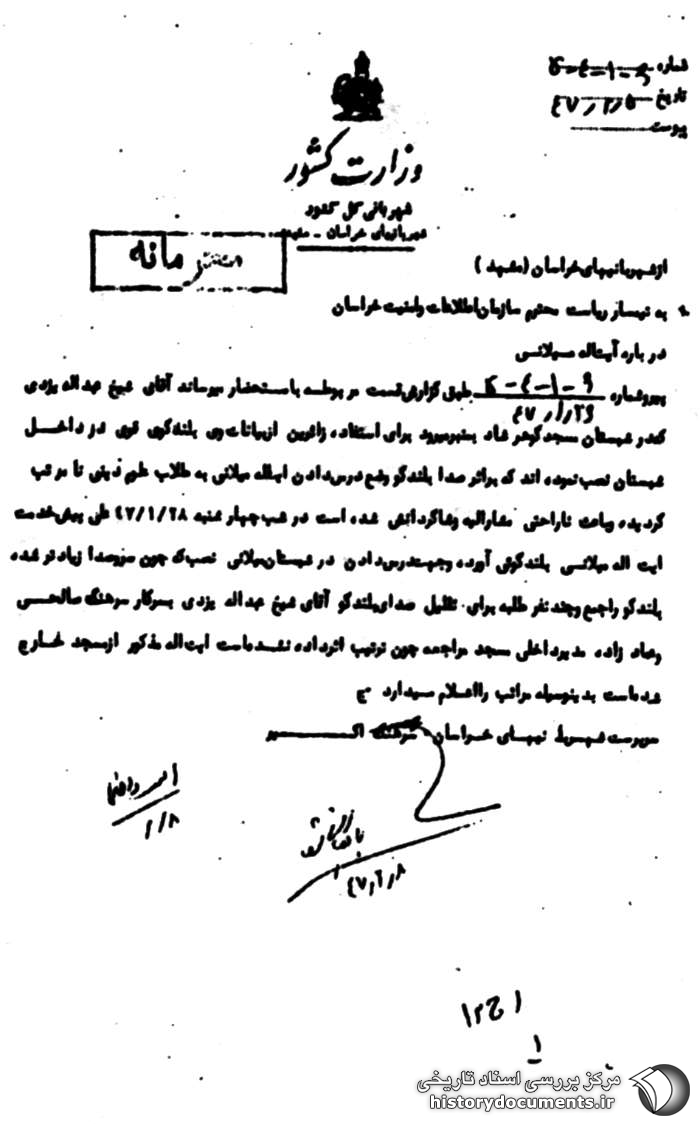 شماره ۵-۴-۱-۹
تاریخ ۴۷/۲/۵
پیوست
وزارت کشور
شهربانی کل کشور
شهربانیهای خراسان - مشهد
مستقیم مانه
از شهربانیهای خراسان (مشهد)
به تیمسار ریاست محترم سازمان اطلاعات و امنیت خراسان
درباره آیت اله میلانی
پیرو شماره ۹-۱-۴-۵
۴۷/۱/۲۹ طبق گزارش قسمت مربوطه باستحضار میرساند آقای شیخ عبداله یزدی
که در شبستان مسجد گوهرشاد بمنبر میرود برای استفاده زائرین از بیانات وی بلندگوی قوی در داخل
شبستان نصب نموده اند که بر اثر صدا بلندگو وضع درس دادن ایت اله میلانی به طلاب علوم دینی نا مرتب
گردیده و باعث ناراحتی مشارالیه و شاگردانش شده است در شب چهارشنبه ۴۷/۱/۲۸ علی پیش خدمت
ایت اله میلانی بلندگوئی آورده و جهت درس دادن در شبستان میلانی نصب که چون سروصدا زیادتر شده
بلندگو را جمع و چند نفر طلبه برای تقلیل صدای بلندگو آقای شیخ عبداله یزدی بسرکار سرهنگ صالحی
و عماد زاده مدیر داخلی مسجد مراجعه چون ترتیب اثر داده نشده است ایت اله مذکور از مسجد خارج
شده است بدینوسیله مراتب را اعلام میدارد
سرپرست شهربانیهای خراسان سرهنگ
۲/۸
بایگانی شود
۴۷/۲/۸
۱۲ح۱
۱
مرکز بررسی اسناد تاریخی
historydocuments.ir